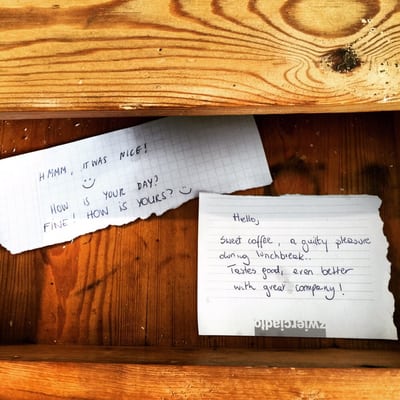 HMMM, IT WAS NICE!
HOW IS YOUR DAY?
FINE! HOW IS YOURS?
Hello,
Sweet coffee, a guilty pleasure
during lunchbreak..
Tastes good, even better
with great company!
zwierciadło